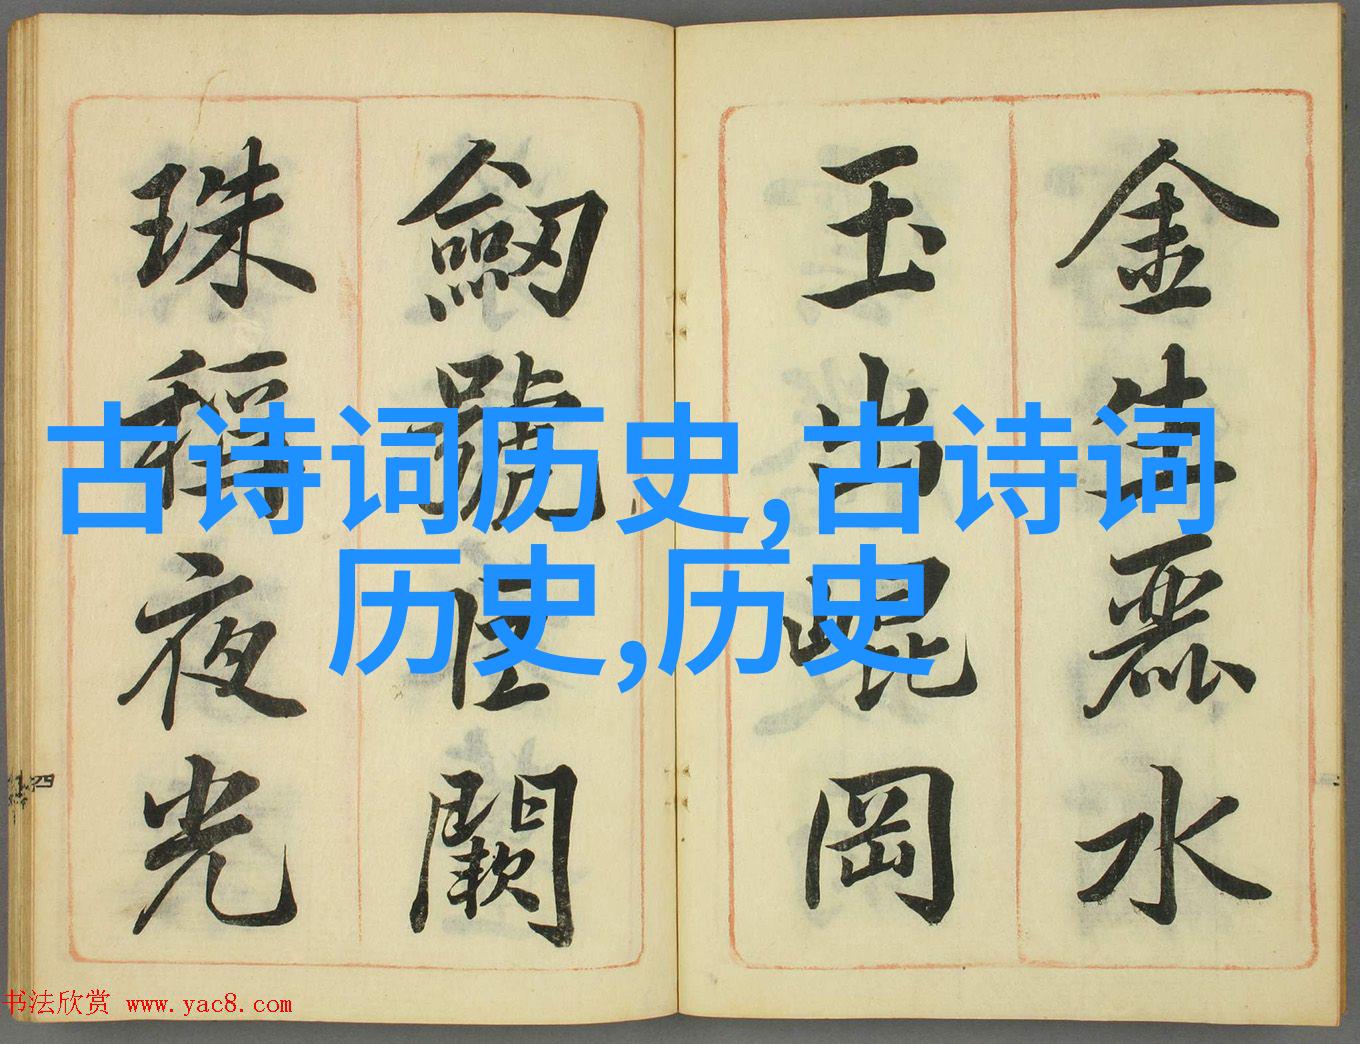 金生麗水
玉出崐岡
劒號巨闕
珠稱夜光
古诗词历史,古诗词
历史,历史
四
书法欣赏 www.yac8.com